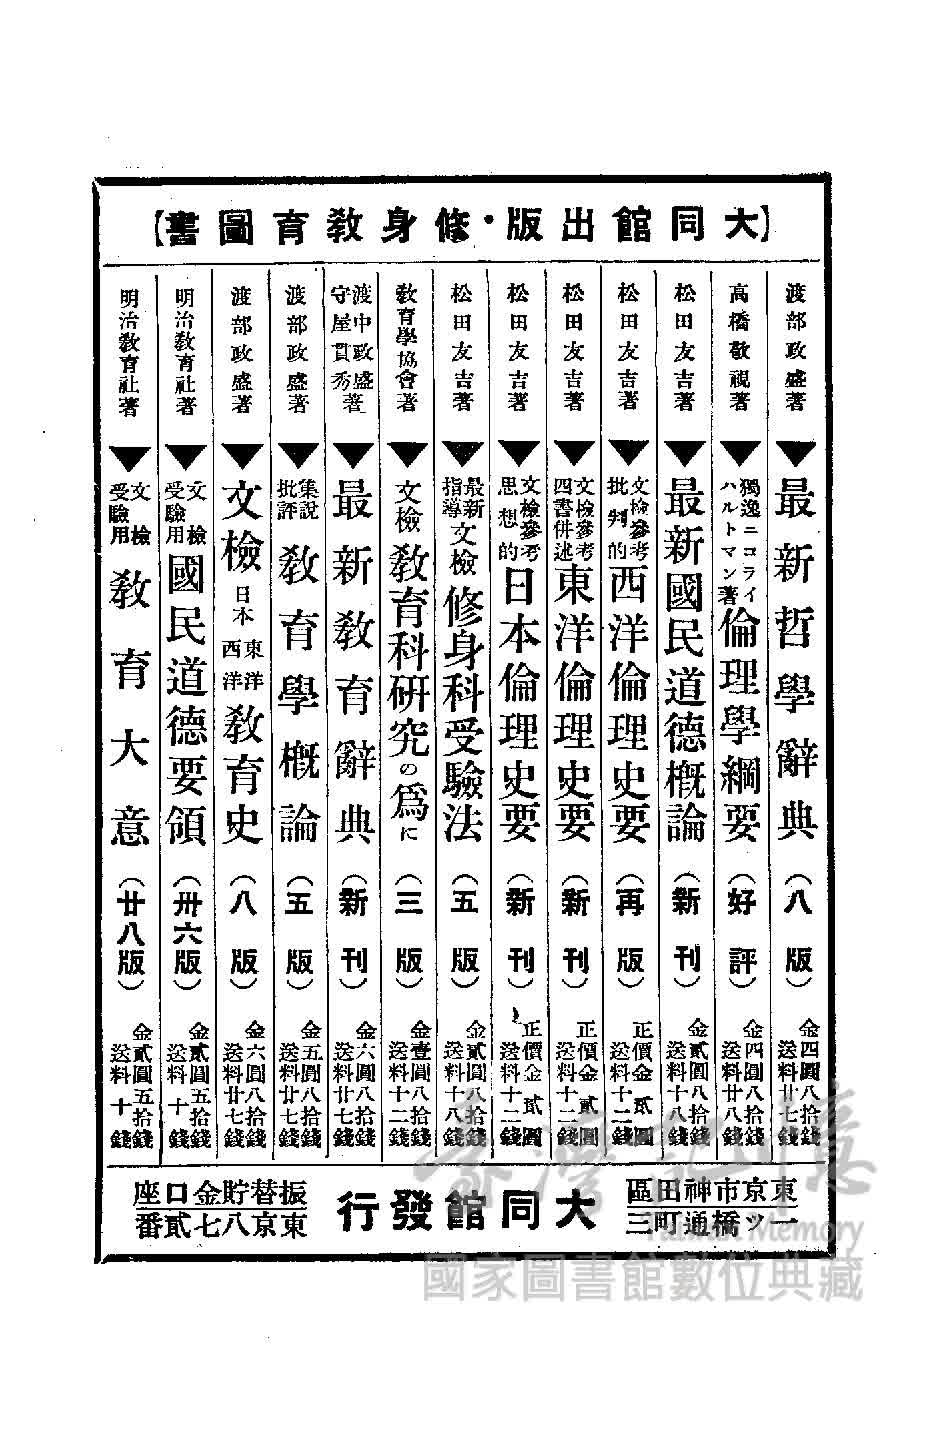 【大同館出版・修身教育圖書】
渡部政盛著 最新哲學辭典（八版） 金四圓八拾錢 送料廿七錢
高橋敬視著 獨逸ニコライハルトマン著 倫理學綱要（好評） 金四圓八拾錢 送料廿八錢
松田友吉著 最新國民道德槪論（新刊） 金貳圓八拾錢 送料十八錢
松田友吉著 文檢參考批判的 西洋倫理史要（再版） 正價金貳圓 送料十二錢
松田友吉著 文檢參考四書併述 東洋倫理史要（新刊） 正價金貳圓 送料十二錢
松田友吉著 文檢參考思想的 日本倫理史要（新刊） 正價金貳圓 送料十二錢
松田友吉著 最新指導 文檢修身科受驗法（五版） 金貳圓八拾錢 送料十八錢
教育學協會著 文檢教育科硏究の爲に（三版） 金壹圓八拾錢 送料十二錢
渡中政盛 守屋貫秀著 最新教育辭典（新刊） 金六圓八拾錢 送料廿七錢
渡部政盛著 集說批評 教育學槪論（五版） 金五圓八拾錢 送料廿七錢
渡部政盛著 文檢 日本東洋西洋 教育史（八版） 金六圓八拾錢 送料廿七錢
明治教育社著 文檢受驗用 國民道德要領（卅六版） 金貳圓五拾錢 送料十錢
明治教育社著 文檢受驗用 教育大意（廿八版） 金貳圓五拾錢 送料十錢
東京市神田區
一ツ橋通町三
大同館發行
振替貯金口座
東京八七貳番
臺灣記憶
Taiwan Memory
國家圖書館數位典藏